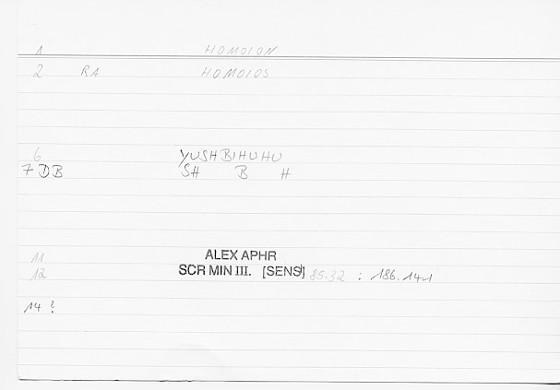 1 HOMOION
2 RA HOMOIOS
6 YUSHBIHUHU
7 DB SH B H
11 ALEX APHR
12 SCR MIN III. [SENS] 85.32 : 186.14
14 ?